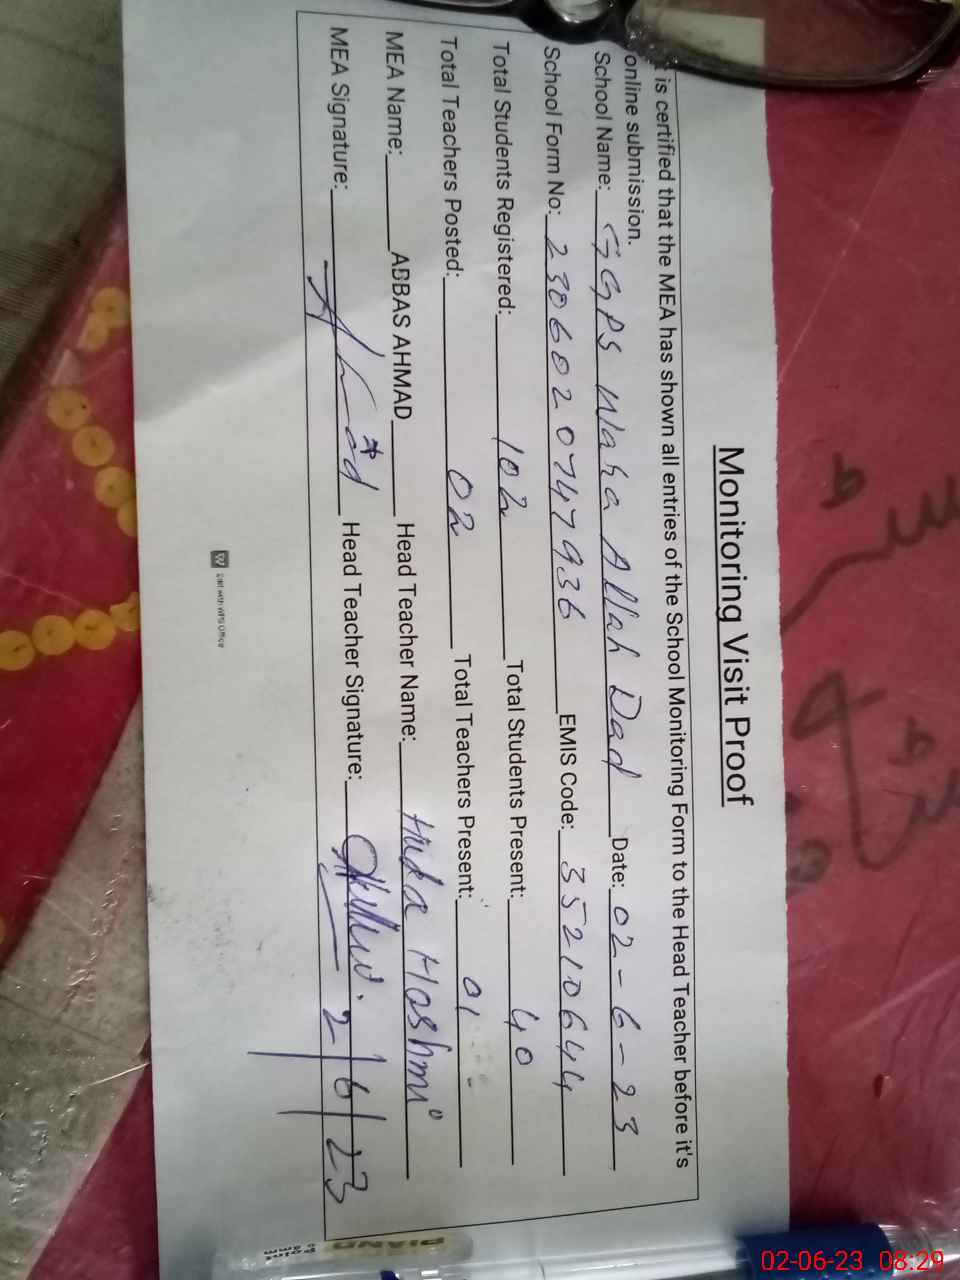 Monitoring Visit Proof
is certified that the MEA has shown all entries of the School Monitoring Form to the Head Teacher before it's
online submission.
School Name: GGPS Waha Allah Dad Date: 02-6-23
School Form No: 2306020747936 EMIS Code: 35210644
Total Students Registered: 102 Total Students Present: 40
Total Teachers Posted: 02 Total Teachers Present: 01
MEA Name: ABBAS AHMAD Head Teacher Name: Huda Hashmi
MEA Signature: Head Teacher Signature:
2/6/23
Edit with WPS Office
PIANO
02-06-23 08:29